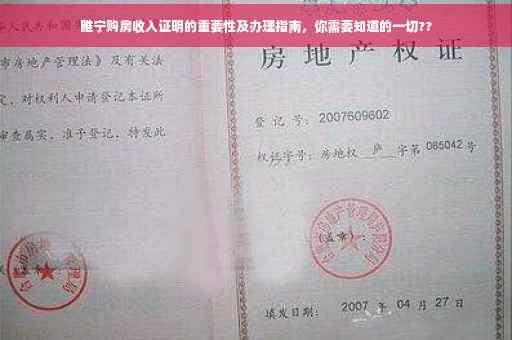 睢宁购房收入证明的重要性及办理指南，你需要知道的一切??
人民共和国
市房地产管理法》及有关法
定，对权利人申请登记本证所
审查属实，准予登记，特发此
房地产权证
登记号：2007609602
权证字号：房地权 庐 字第 065042 号
(盖章)：
填发日期：2007 年 04 月 27 日